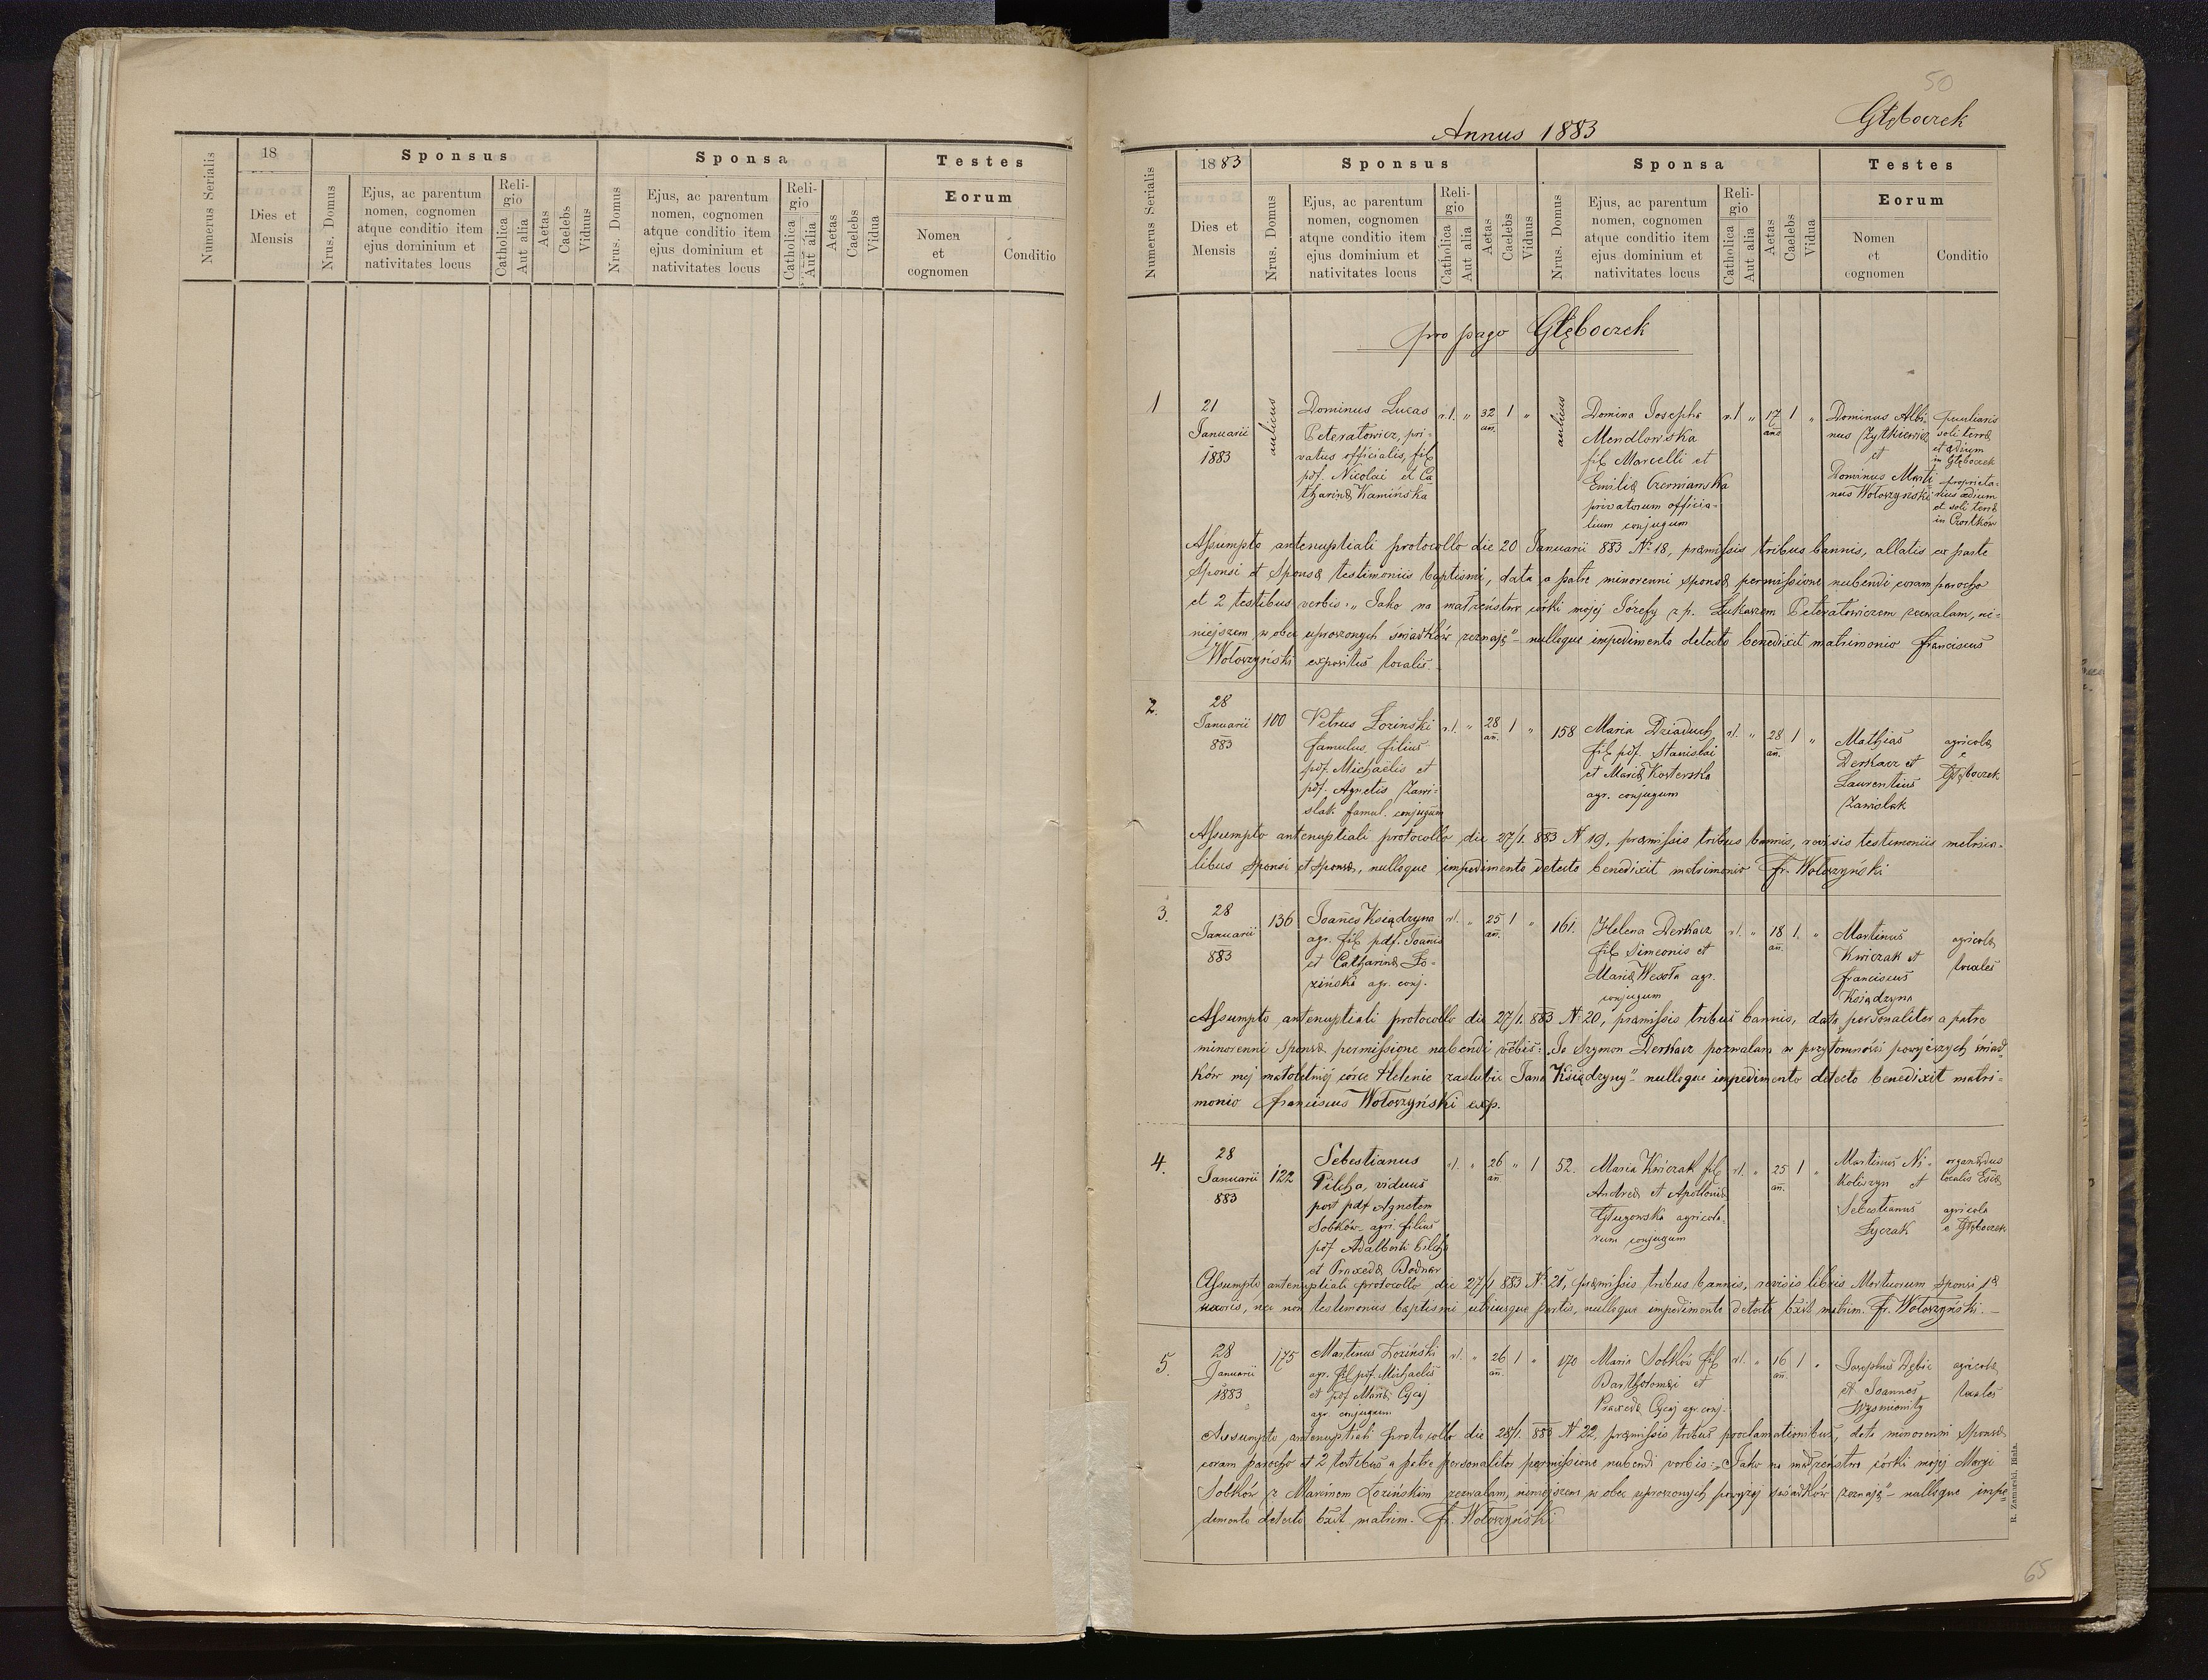 Numerus Serialis
18
Dies et
Mensis
Sponsus
Nrus. Domus
Ejus, ac parentum
nomen, cognomen
atque conditio item
ejus dominium et
nativitates locus
Reli-
gio
Catholica
Aut alia
Aetas
Caelebs
Viduus
Sponsa
Nrus. Domus
Ejus, ac parentum
nomen, cognomen
atque conditio item
ejus dominium et
nativitates locus
Reli-
gio
Catholica
Aut alia
Aetas
Caelebs
Vidua
Testes
Eorum
Nomen
et
cognomen
Conditio
50
Annus 1883
Głęboczek
Numerus Serialis
1883
Dies et
Mensis
Sponsus
Nrus. Domus
Ejus, ac parentum
nomen, cognomen
atque conditio item
ejus dominium et
nativitates locus
Reli-
gio
Catholica
Aut alia
Aetas
Caelebs
Viduus
Sponsa
Nrus. Domus
Ejus, ac parentum
nomen, cognomen
atque conditio item
ejus dominium et
nativitates locus
Reli-
gio
Catholica
Aut alia
Aetas
Caelebs
Vidua
Testes
Eorum
Nomen
et
cognomen
Conditio
pro pago Głęboczek
1
21
Januarii
1883
aulicus
Dominus Lucas
Peteratowicz, pri-
vatus officialis, fil
pdf. Nicolai et Ca
tharinæ Kamińska
r.l. " 32 an̄. 1 "
aulicus
Domina Josepha
Mendlowska
fil Marcelli et
Emiliæ
privatorum officia-
lium conjugum
r.l " 17 ans 1 "
Dominus Albi-
nus Zytkiewicz
et
Dominus Marti
nus Wołoszyński
peculiaris
soli terræ
et ædium
in Głęboczek
proprieta-
rius ædium
et soli terræ
in Czortków
Assumpto antenuptiali protocollo die 20 Januarii 883 N. 18, præmissis tribus bannis, allatis ex parte
Sponsi et Sponsæ testimoniis baptismi, data a patre minorenni sponsæ permissione nubendi coram parocho
et 2 testibus verbis: „Jako na małżeństwo córki mojej Józefy z p. Łukaszem Peteratowiczem zezwalam, ni-
niejszem w obec uproszonych świadków zeznaję" – nulloque impedimento detecto benedixit matrimonio Franciscus
Wołoszyński expositus localis.
2.
28
Januarii
883
100
Petrus Łoziński
famulus, filius
pdf. Michaëlis et
pdf. Agnetis Zawi-
slak famul. conjugum
r.l. " 28 an̄. 1 "
158
Maria Dziaduch
fil pdf. Stanislai
et Mariæ
agr. conjugum
r.l. " 28 an̄. 1 "
Mathias
Derkacz et
Laurentius
Zawislak
agricolæ
e
Głęboczek
Assumpto antenuptiali protocollo die 27/1. 883 N 19, præmissis tribus bannis, revisis testimoniis metrica-
libus Sponsi et Sponsæ, nulloque impedimento detecto benedixit matrimonio Fr. Wołoszyński
3.
28
Januarii
883
136
Joannes Księdzyna
agr. fil pdf. Joannis
et Catharinæ Ło-
zińska agr. conj.
r.l. " 25 an̄. 1 "
161.
Helena Derkacz
fil Simeonis et
Mariæ Wesoła agr.
conjugum
r.l. " 18 an̄. 1. "
Martinus
Kwiczak et
Franciscus
Księdzyna
agricolæ
locales
Assumpto antenuptiali protocollo die 27/1. 883 N. 20, præmissis tribus bannis, data personaliter a patre
minorenni Sponsæ permissione nubendi verbis: „Ja Szymon Derkacz pozwalam w przytomności powyższych świad
ków mej małoletniej córce Helenie zaslubic Jana Księdzyny" – nulloque impedimento detecto benedixit matri-
monio Franciscus Wołoszyński exp.
4.
28
Januarii
883
122
Sebestianus
Pilcha, viduus
post pdf Agnetem
Sobków – agr. filius
pdf Adalberti Pilcha
et Praxedæ Bodnar
r.l. " 26 an̄. " 1
52.
Maria Kwiczak fil
Andreæ et Apolloniæ
agricola-
rum conjugum
r.l. " 25 an̄. 1 "
Martinus Ni-
koliszyn et
Sebestianus
Łyczak
organædus
localis
agricola
e Głęboczek
Assumpto antenuptiali protocollo die 27/1 883 N. 21, præmissis tribus bannis, revisis libris Mortuorum Sponsi 1æ
uxoris, nec non testimoniis baptismi utriusque partis, nulloque impedimento detecto bxit matrim. Fr. Wołoszyński. –
5.
28
Januarii
1883
175
Martinus Łoziński
agr. fil pdf. Michaelis
et pdf Mariæ Cycaj
agr. conjugum
r.l. " 26 an̄. 1 "
170
Maria Sobków fil
Bartholomæi et
Praxedæ Cycaj agr. conj.
r.l. " 16 an̄. 1 "
Josephus Dębic
et Joannes
agricolæ
locales
Assumpto antenuptiali protocollo die 28/1. 883 N 22, præmissis tribus proclamationibus, data minorenni Sponsæ
coram parocho et 2 testibus a patre personaliter permissione nubendi verbis: „Jako na małżeństwo córki mojej Maryi
Sobków z Marcinem Łozińskim zezwalam, niniejszem w obec uproszonych powyżej świadków zeznaję" – nulloque impe
dimento detecto bxit matrim. Fr. Wołoszyński
R. Zamarski. Biała.
65